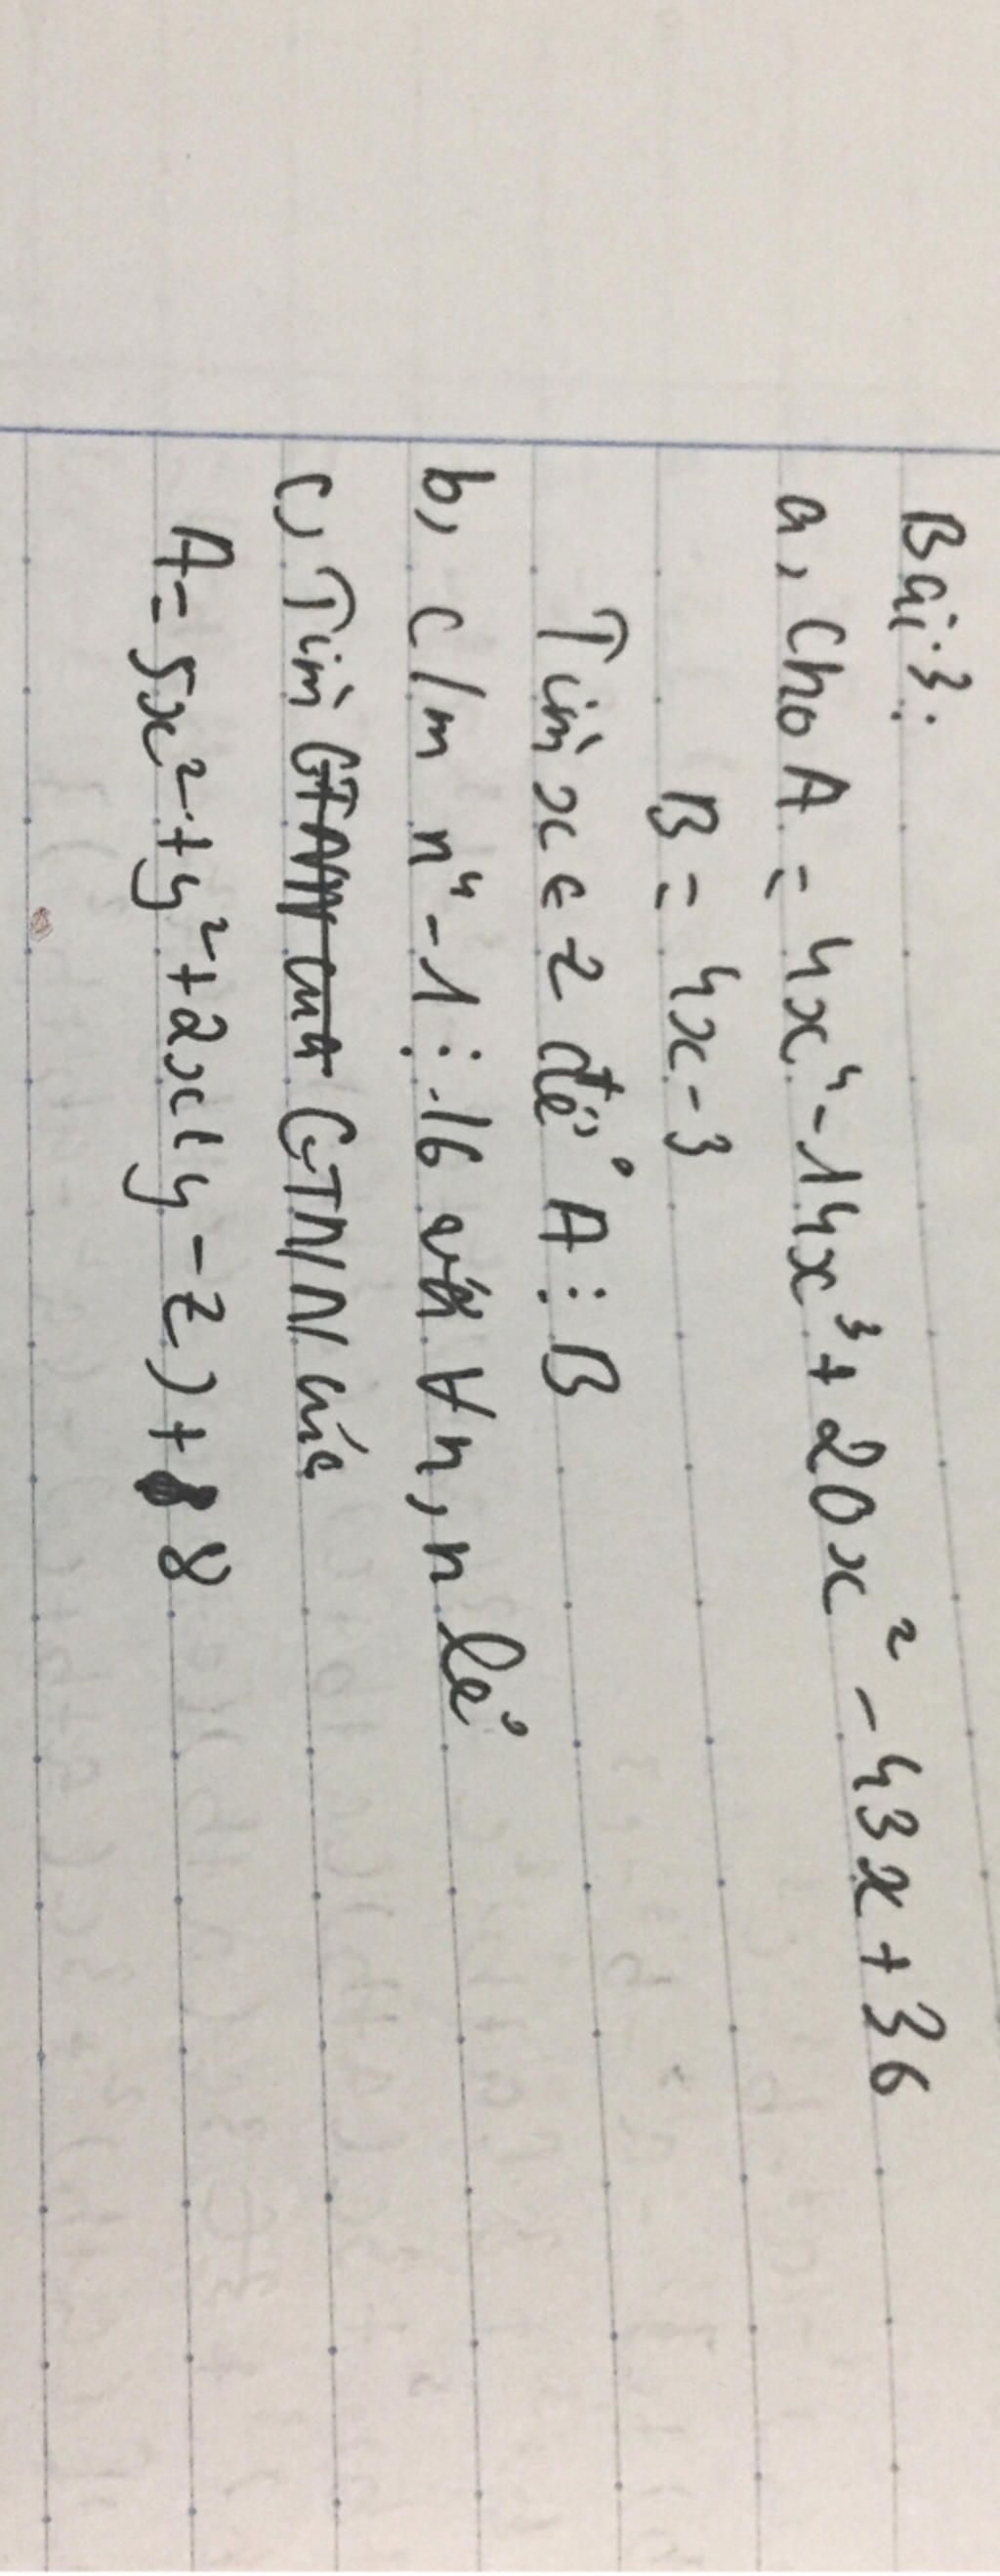 Bài 3:
a, Cho A = 4x⁴ - 14x³ + 20x² - 43x + 36
B = 4x - 3
Tìm x ∈ z để A ⋮ B
b, c/m n⁴ - 1 ⋮ 16 với ∀n, n lẻ
c, Tìm GTNN của
A = 5x² + y² + 2x(y - z) + 8